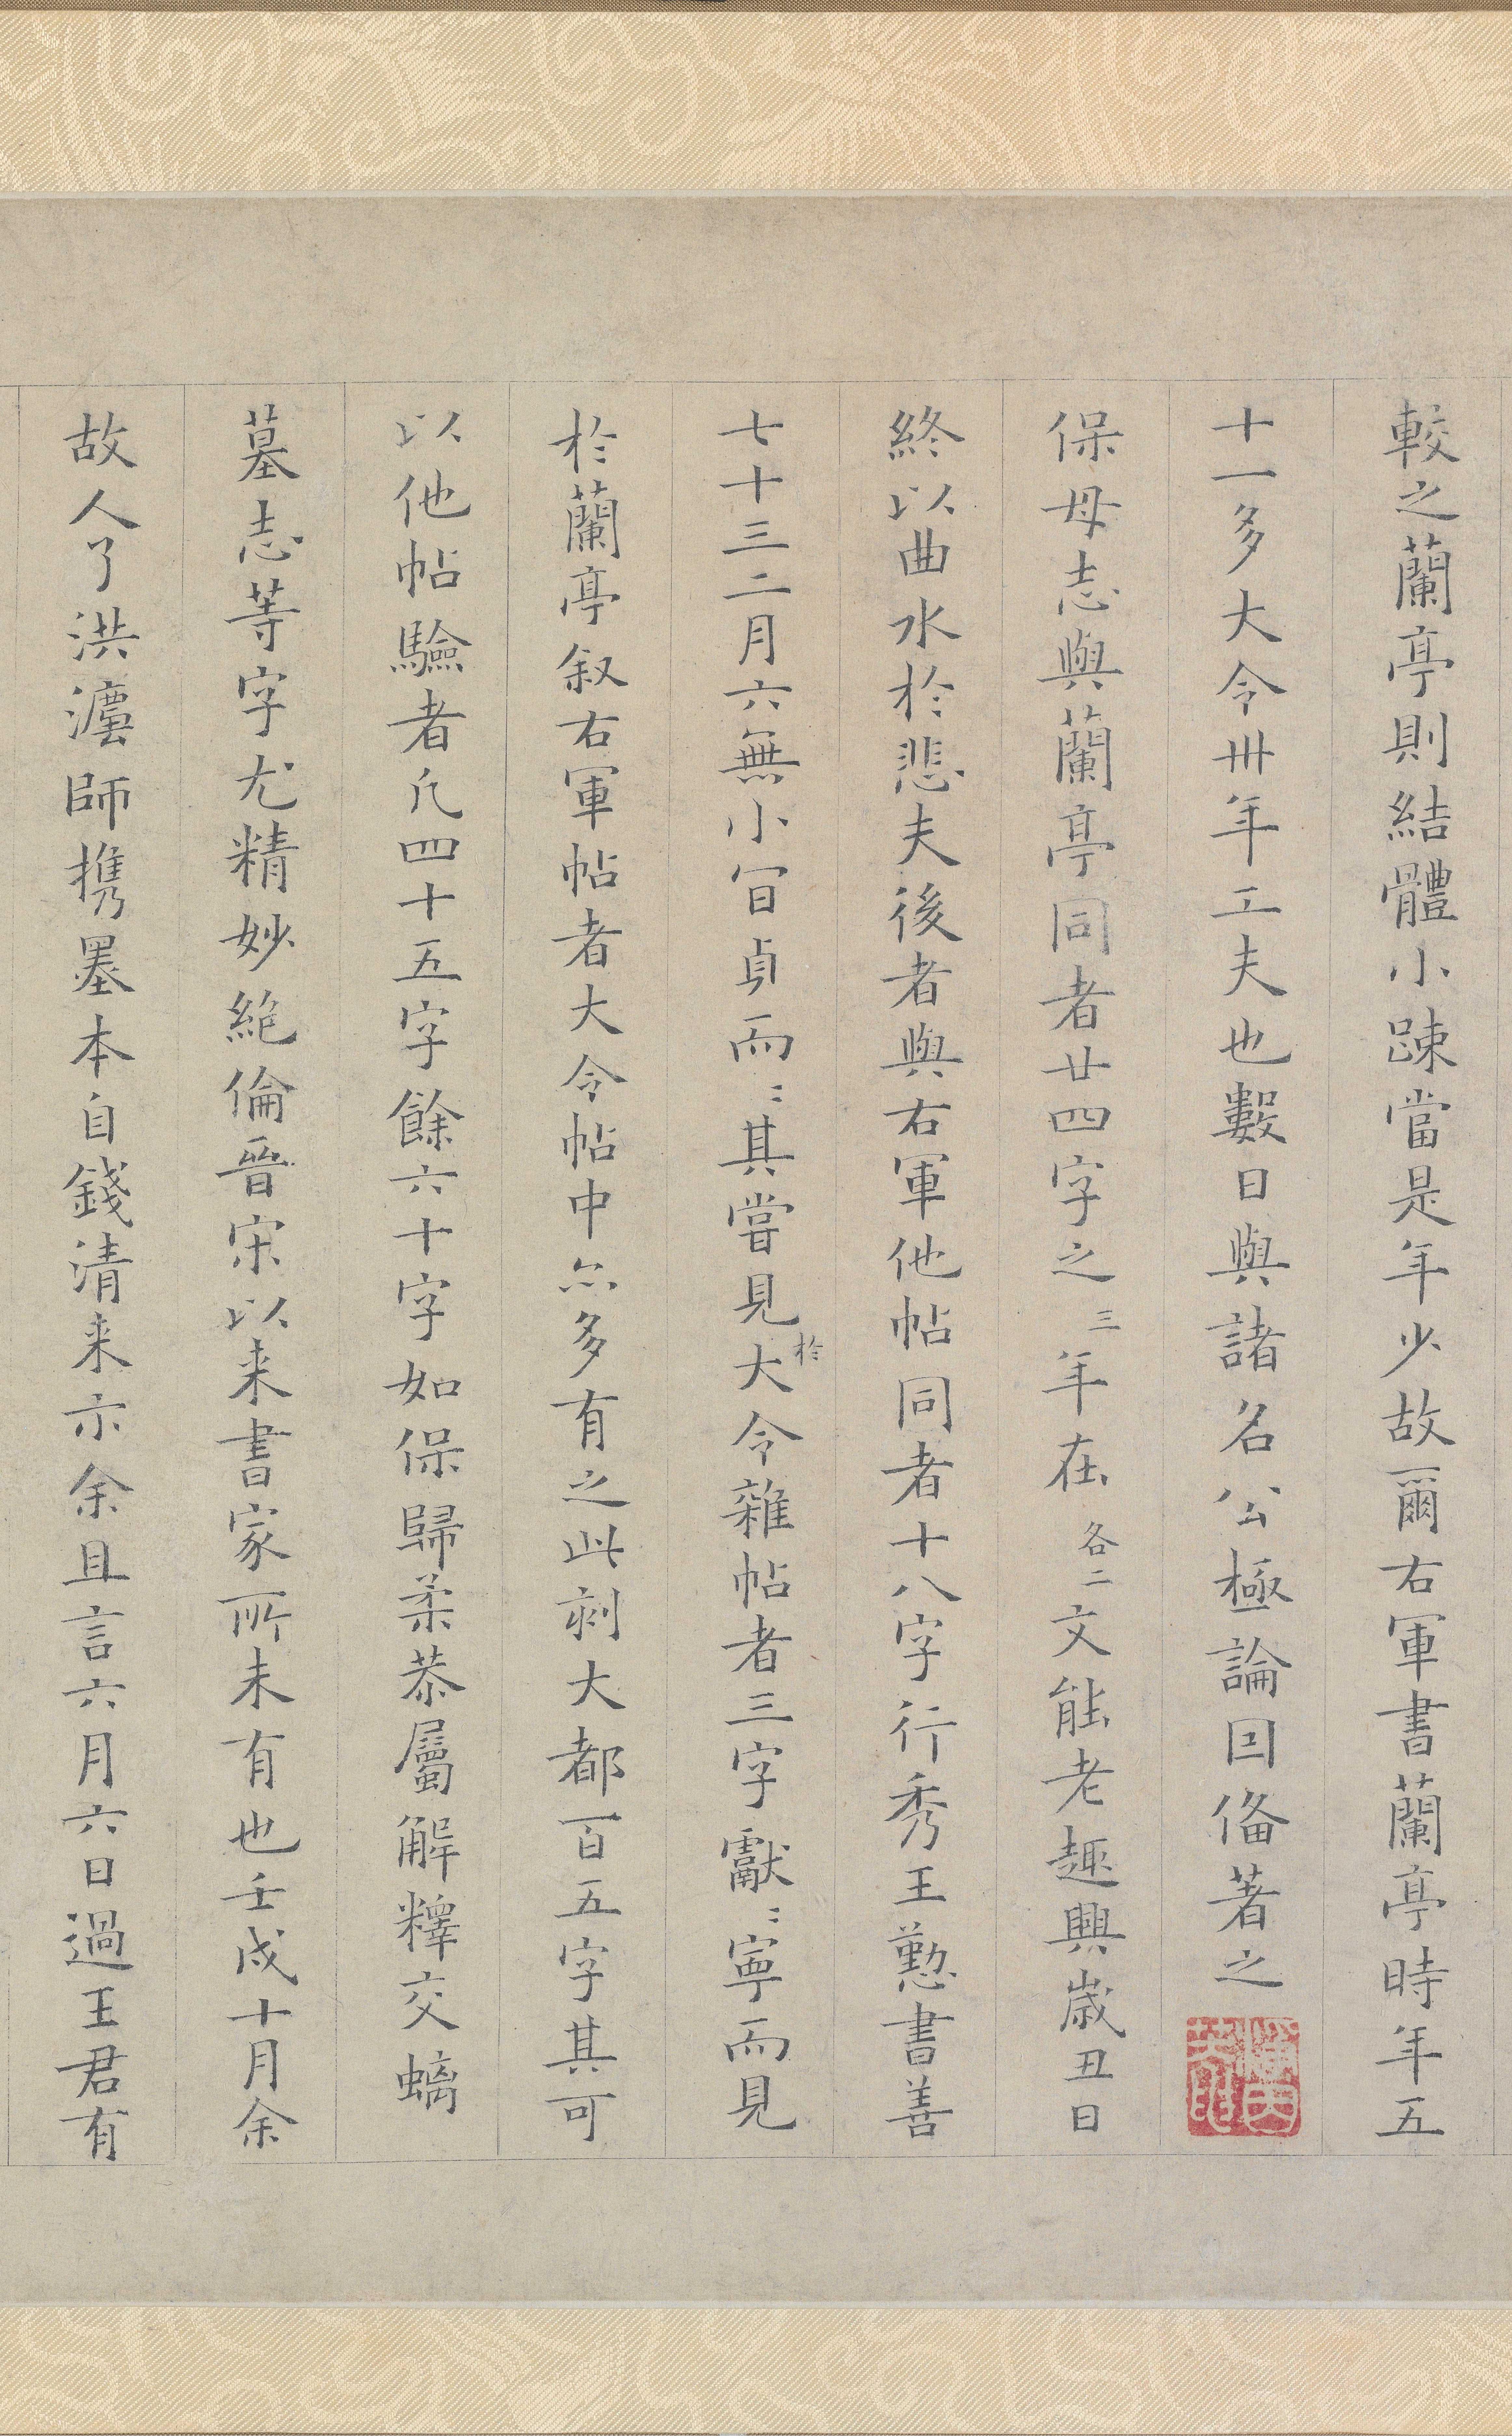 較之蘭亭則結體小踈當是年少故爾右軍書蘭亭時年五
十一多大令卅年工夫也數日與諸名公極論因俻著之
保母志與蘭亭同者廿四字之三年在各二文能老趣興歳丑日
終以曲水於悲夫後者與右軍他帖同者十八字行秀王懃書善
七十三二月六無小冝貞而〻其嘗見於大令雜帖者三字獻〻寧而見
於蘭亭叙右軍帖者大令帖中亦多有之此刻大都百五字其可
以他帖驗者凡四十五字餘六十字如保歸柔恭屬解釋交螭
墓志等字尤精妙絶倫晉宋以来書家所未有也壬戌十月余
故人了洪灋師携墨本自錢清来示余且言六月六日過王君有